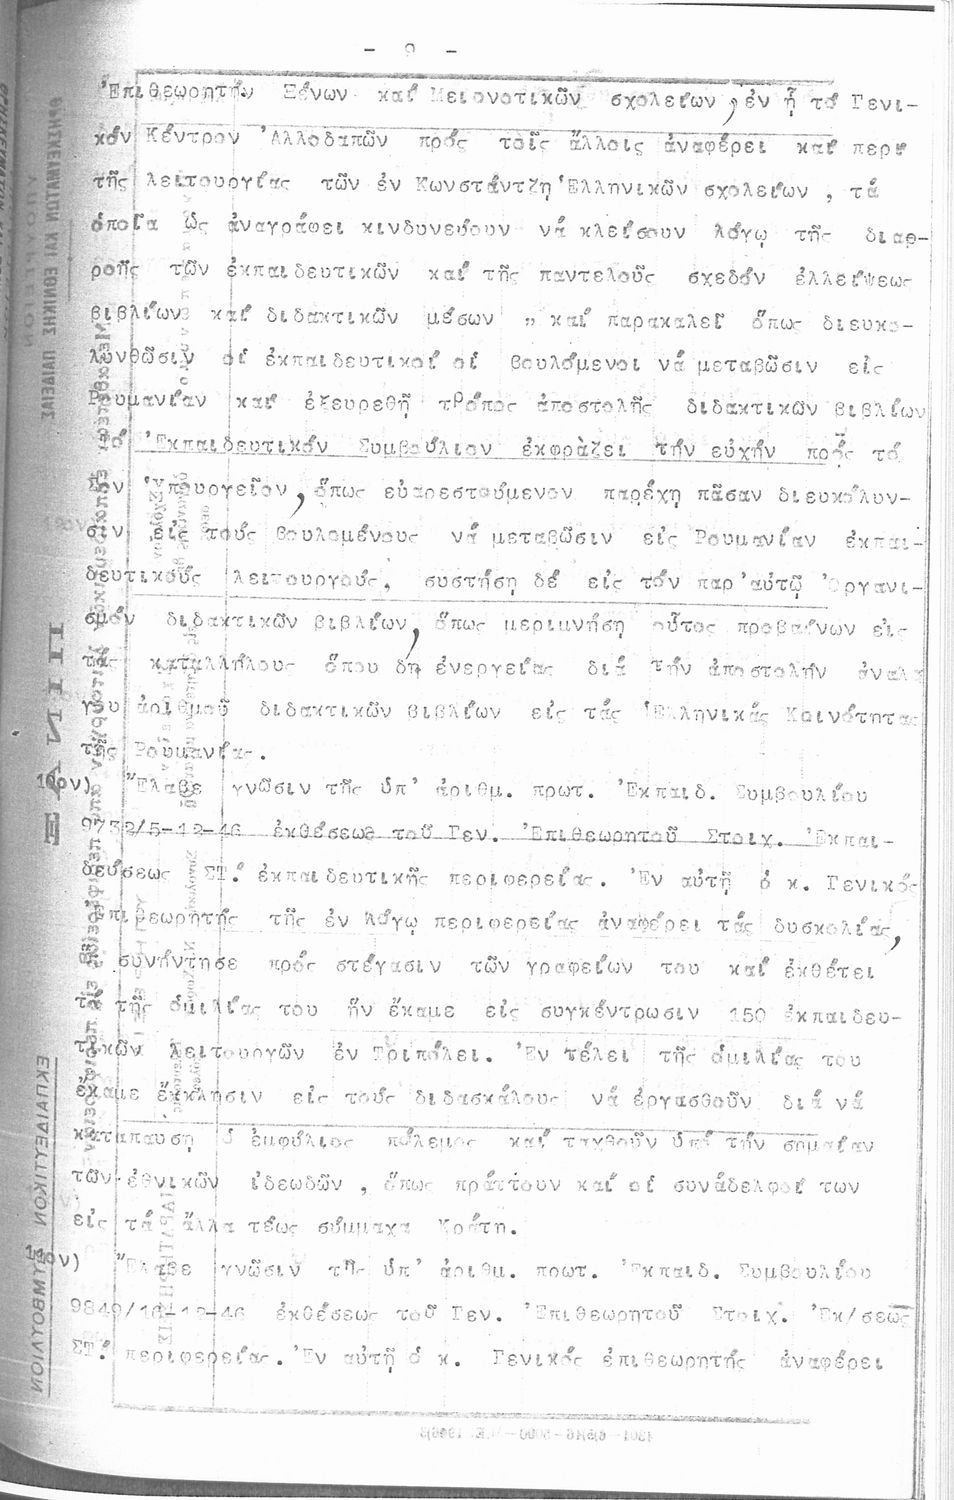 - 9 -
Ἐπιθεωρητήν Ξένων καί Μειονοτικῶν σχολείων, ἐν ᾗ τό Γενι-
κόν Κέντρον Ἀλλοδαπῶν πρός τοῖς ἄλλοις ἀναφέρει καί περί
τῆς λειτουργίας τῶν ἐν Κωνστάντζῃ Ἑλληνικῶν σχολείων, τά
ὁποῖα ὡς ἀναγράφει κινδυνεύουν νά κλείσουν λόγῳ τῆς διαρ-
ροῆς τῶν ἐκπαιδευτικῶν καί τῆς παντελοῦς σχεδόν ἐλλείψεως
βιβλίων καί διδακτικῶν μέσων „ καί παρακαλεῖ ὅπως διευκο-
λυνθῶσιν οἱ ἐκπαιδευτικοί οἱ βουλόμενοι νά μεταβῶσιν εἰς
Ρουμανίαν καί ἐξευρεθῇ τρόπος ἀποστολῆς διδακτικῶν βιβλίων
Τό Ἐκπαιδευτικόν Συμβούλιον ἐκφράζει τήν εὐχήν πρός τό
Σ)ον Ὑπουργεῖον, ὅπως εὐαρεστούμενον παρέχῃ πᾶσαν διευκόλυν-
σιν εἰς τούς βουλομένους νά μεταβῶσιν εἰς Ρουμανίαν ἐκπαι-
δευτικούς λειτουργούς, συστήσῃ δέ εἰς τόν παρ' αὐτῷ Ὀργανι-
σμόν διδακτικῶν βιβλίων, ὅπως μεριμνήσῃ οὗτος προβαίνων εἰς
τάς καταλλήλους ὅπου δή ἐνεργείας διά τήν ἀποστολήν ἀναλό
γου ἀριθμοῦ διδακτικῶν βιβλίων εἰς τάς Ἑλληνικάς Κοινότητας
τῆς Ρουμανίας.
Ἔλαβε γνῶσιν τῆς ὑπ' ἀριθμ. πρωτ. Ἐκπαιδ. Συμβουλίου
9732/5-12-46 ἐκθέσεως τοῦ Γεν. Ἐπιθεωρητοῦ Στοιχ. Ἐκπαι-
δεύσεως ΣΤ΄. ἐκπαιδευτικῆς περιφερείας. Ἐν αὐτῇ ὁ κ. Γενικός
ἐπιθεωρητής τῆς ἐν λόγῳ περιφερείας ἀναφέρει τάς δυσκολίας,
ἅς συνήντησε πρός στέγασιν τῶν γραφείων του καί ἐκθέτει
τά τῆς ὁμιλίας του ἥν ἔκαμε εἰς συγκέντρωσιν 150 ἐκπαιδευ-
τικῶν λειτουργῶν ἐν Τριπόλει. Ἐν τέλει τῆς ὁμιλίας του
ἔκαμε ἔκκλησιν εἰς τούς διδασκάλους νά ἐργασθοῦν διά νά
καταπαύσῃ ὁ ἐμφύλιος πόλεμος καί ταχθοῦν ὑπό τήν σημαίαν
τῶν ἐθνικῶν ἰδεωδῶν, ὅπως πράττουν καί οἱ συνάδελφοί των
εἰς τά ἄλλα τέως σύμμαχα Κράτη.
Ἔλαβε γνῶσιν τῆς ὑπ' ἀριθμ. πρωτ. Ἐκπαιδ. Συμβουλίου
9849/10-12-46 ἐκθέσεως τοῦ Γεν. Ἐπιθεωρητοῦ Στοιχ. Ἐκ/σεως
ΣΤ΄. περιφερείας. Ἐν αὐτῇ ὁ κ. Γενικός ἐπιθεωρητής ἀναφέρει